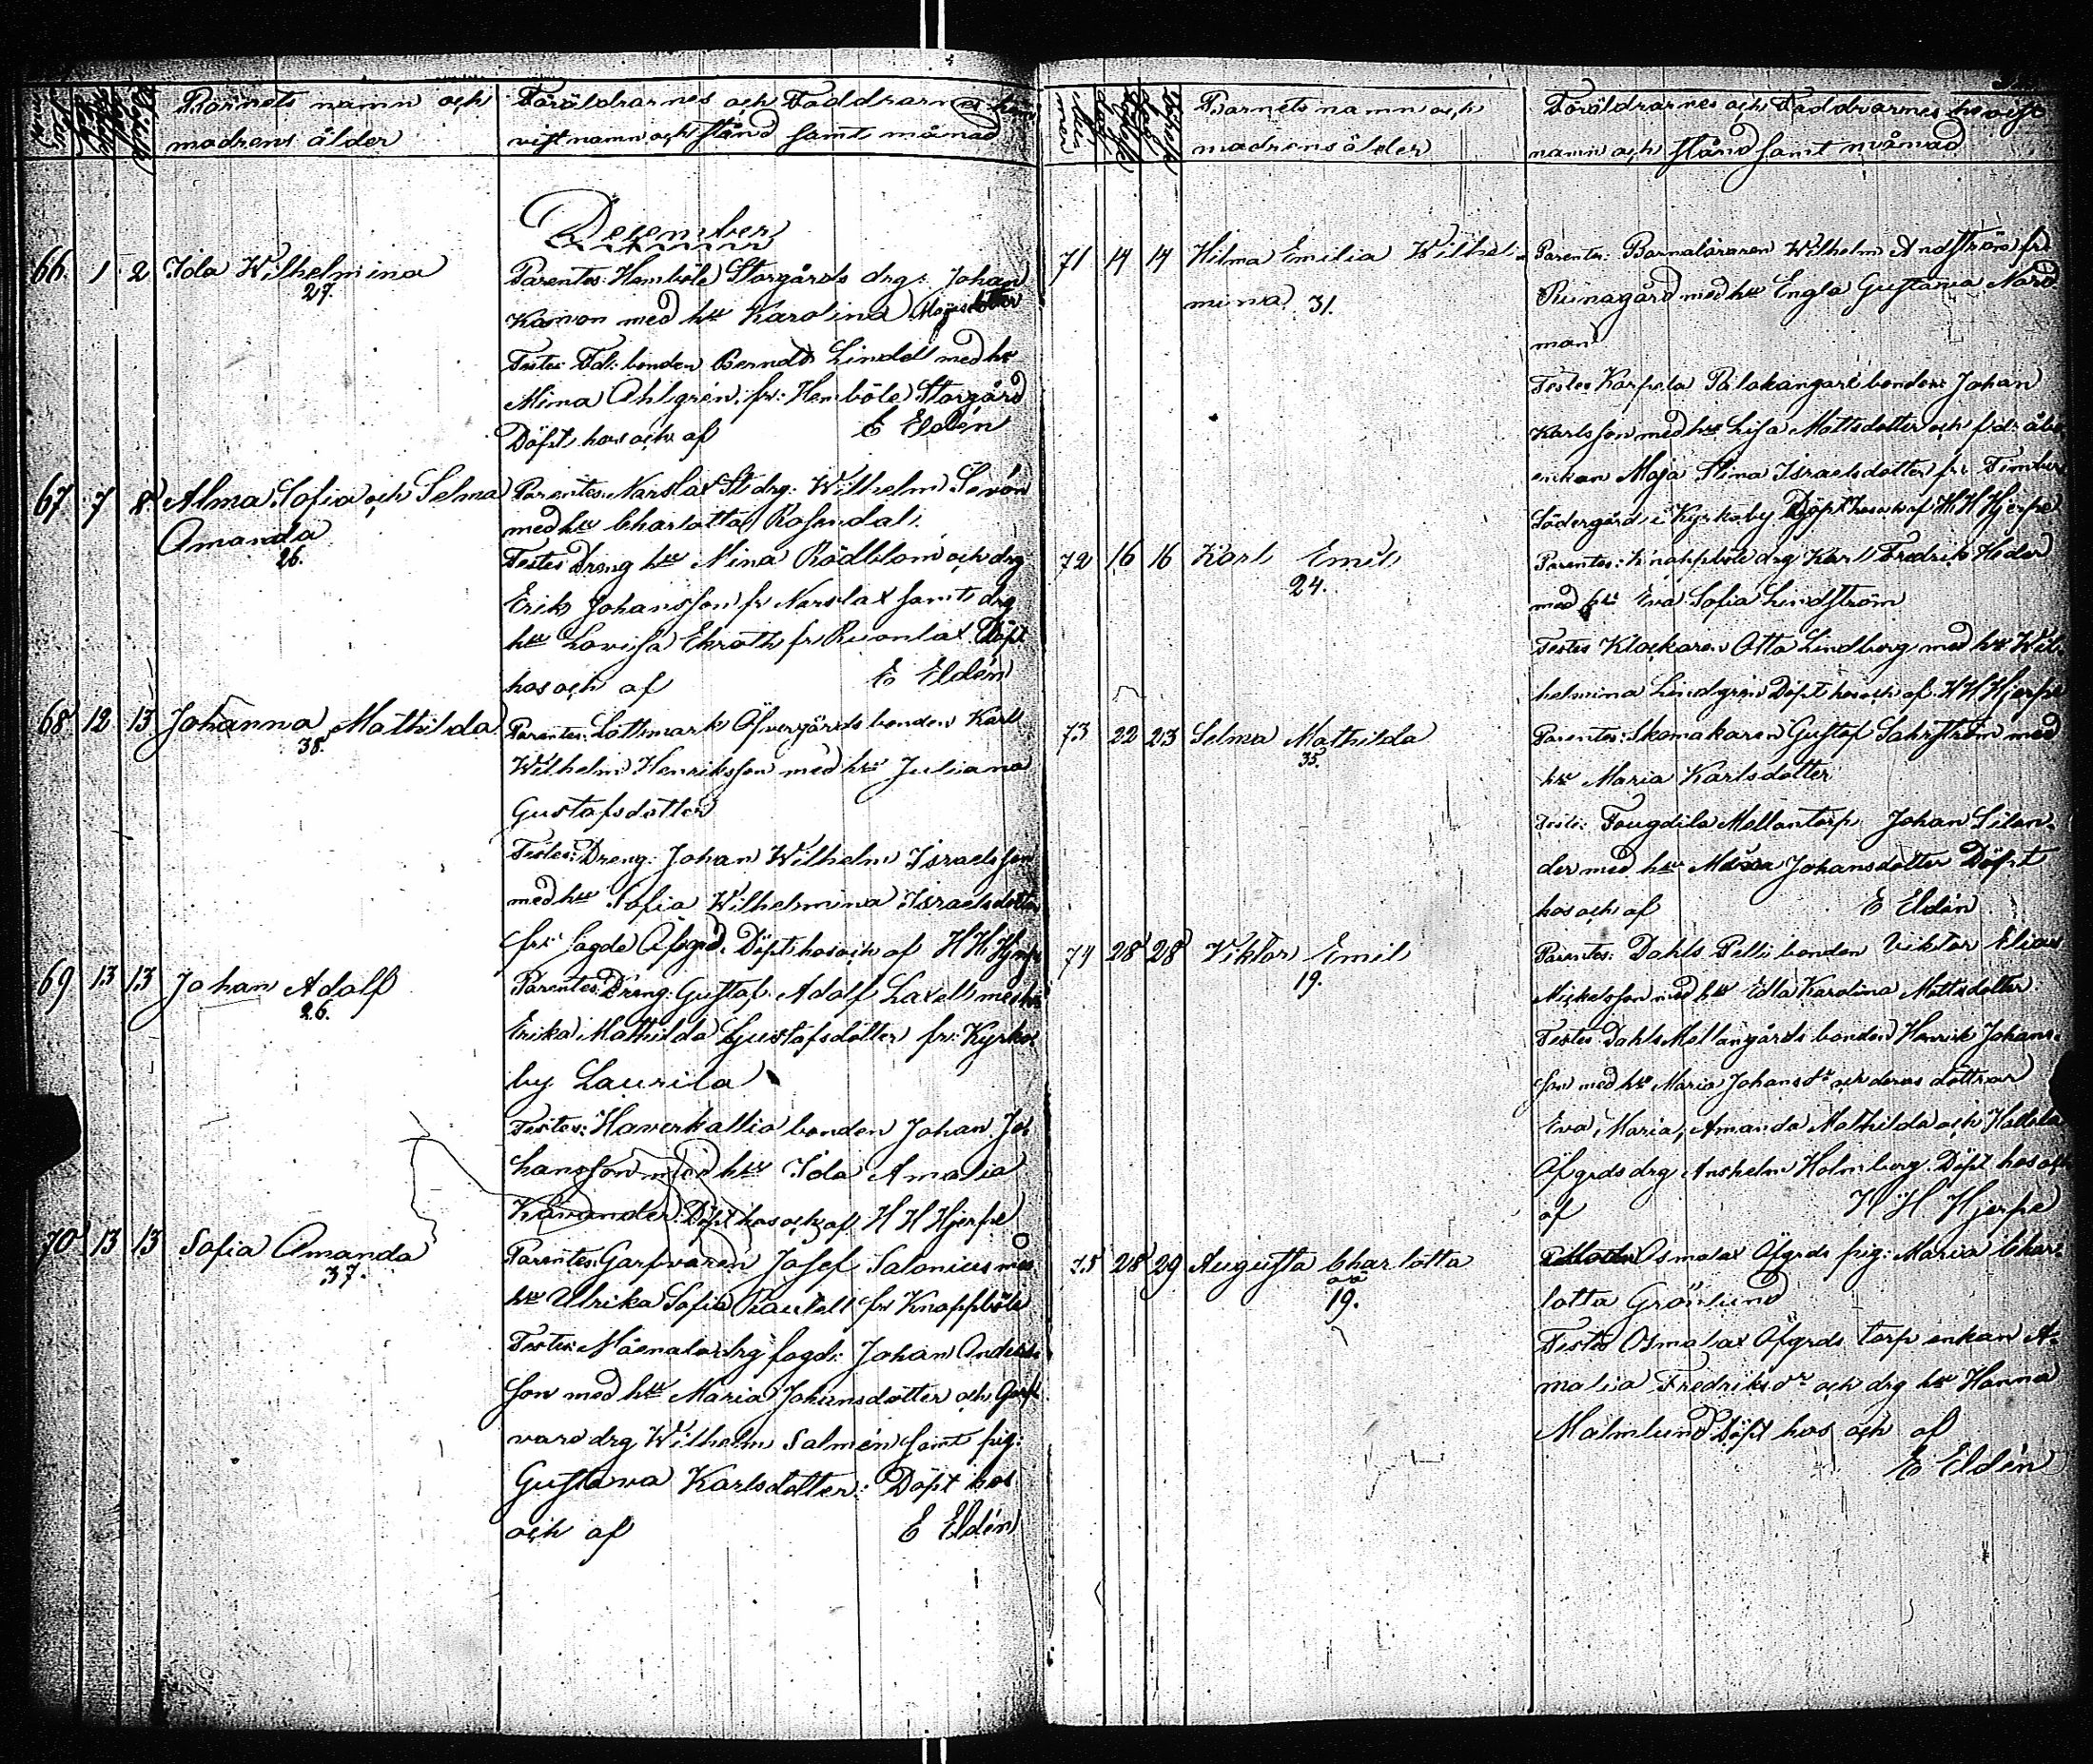 Barnets namn och
madrens ålder
Föräldrarnes och Faddrarnes
vist namn och stånd samt månad
December
66. 1. 2 Ida Wilhelmina
27.
Parentes: Hemböle Storgårds drg: Johan
Kanon med hu Karolina
Testes: Fdt: bonden Berndt Lindell med hu
Mima Ahlgrén, fr: Hemböle Storgård
Döpt hos och af E Eldén
67 7 8 Alma Sofia och Selma
Amanda
26.
Parentes: Narslax St drg: Wilhelm Sevón
med hu Charlotta Rosendal.
Testes Dreng hu Mina Rödblom och drg
Erik Johansson fr Narslax samt drg
hu Lovisa Ekroth fr Reonlax Döpt
hos och af E Eldén
68 12 13 Johanna Mathilda
38.
Parentes: Lottmark Öfvergårds bonden Karl
Wilhelm Henriksson med hu Juliana
Gustafsdotter
Testes: Dreng: Johan Wilhelm Israelsson
med hu Sofia Wilhelmina Israelsdotter
fr: Lagde Öfvgrd. Döpt hos och af H H Hjerpe
69 13 13 Johan Adolf
26.
Parentes Dreng: Gustaf Adolf Laxell med hu
Erika Mathilda Gustafsdotter fr: Kyrko
by Laurila
Testes: Haverkallio bonden Johan Jo
hansson med hu Ida Amalia
Kavander. Döpt hos och af H H Hjerpe
70 13 13 Sofia Amanda
37.
Parentes: Garfvaren Josef Salonius med
hu Ulrika Sofia Rautell fr Knappböle
Testes: Måenala drg fogd: Johan Anders
son med hu Maria Johansdotter och Garf
vare drg Wilhelm Salmén samt pig:
Gustava Karlsdotter: Döpt hos
och af E Eldén
Barnets namn och
madrens ålder
Föräldrarnes och Faddrarnes hevist
namn och stånd samt månad
71 14 14 Hilma Emilia Wilhel-
mina 31.
Parentes: Barnaläraren Wilhelm Andström fr
Runagård med hu Engla Gustava Nord
man
Testes Karpela Palokangari bonden Johan
Karlsson med hu Lisa Mattsdotter och f:d: åbo
enkan Maja Stina Israelsdotter fr: Timber
Södergård i Kyrkoby Döpt hos och af H H Hjerpe
72 16 16 Karl Emil
24.
Parentes: Knappböle drg Karl Fredrik Heder
med hu Eva Sofia Lindström
Testes Klockaren Otto Lindberg med hu Wil-
helmina Lindgrén Döpt hos och af H H Hjerpe
73 22 23 Selma Mathilda
35.
Parentes: Skomakaren Gustaf Sahrström med
hu Maria Karlsdotter
Testes: Fougdila Mellantorp Johan Silan-
der med hu Maria Johansdotter Döpt
hos och af E Eldén
74 28 28 Viktor Emil
19.
Parentes: Dahls Pelli bonden Viktor Elias
Mickelsson med hu Edla Karolina Mattsdotter
Testes Dahls Mellangårds bonden Henrik Johans-
son med hu Maria Johansdr och deras döttrar
Eva Maria, Amanda Mathilda och
Öfgrds drg Anshelm Holmberg. Döpt hos och
af H H Hjerpe
75 28 29 Augusta Charlotta
oä
19.
Moder Osmalax Öfgrds pig: Maria Char-
lotta Grönlund
Testes Osmalax Öfgrds torp enkan A-
malia Fredriksdr och drg hu Hanna
Malmlund Döpt hos och af
E Eldén